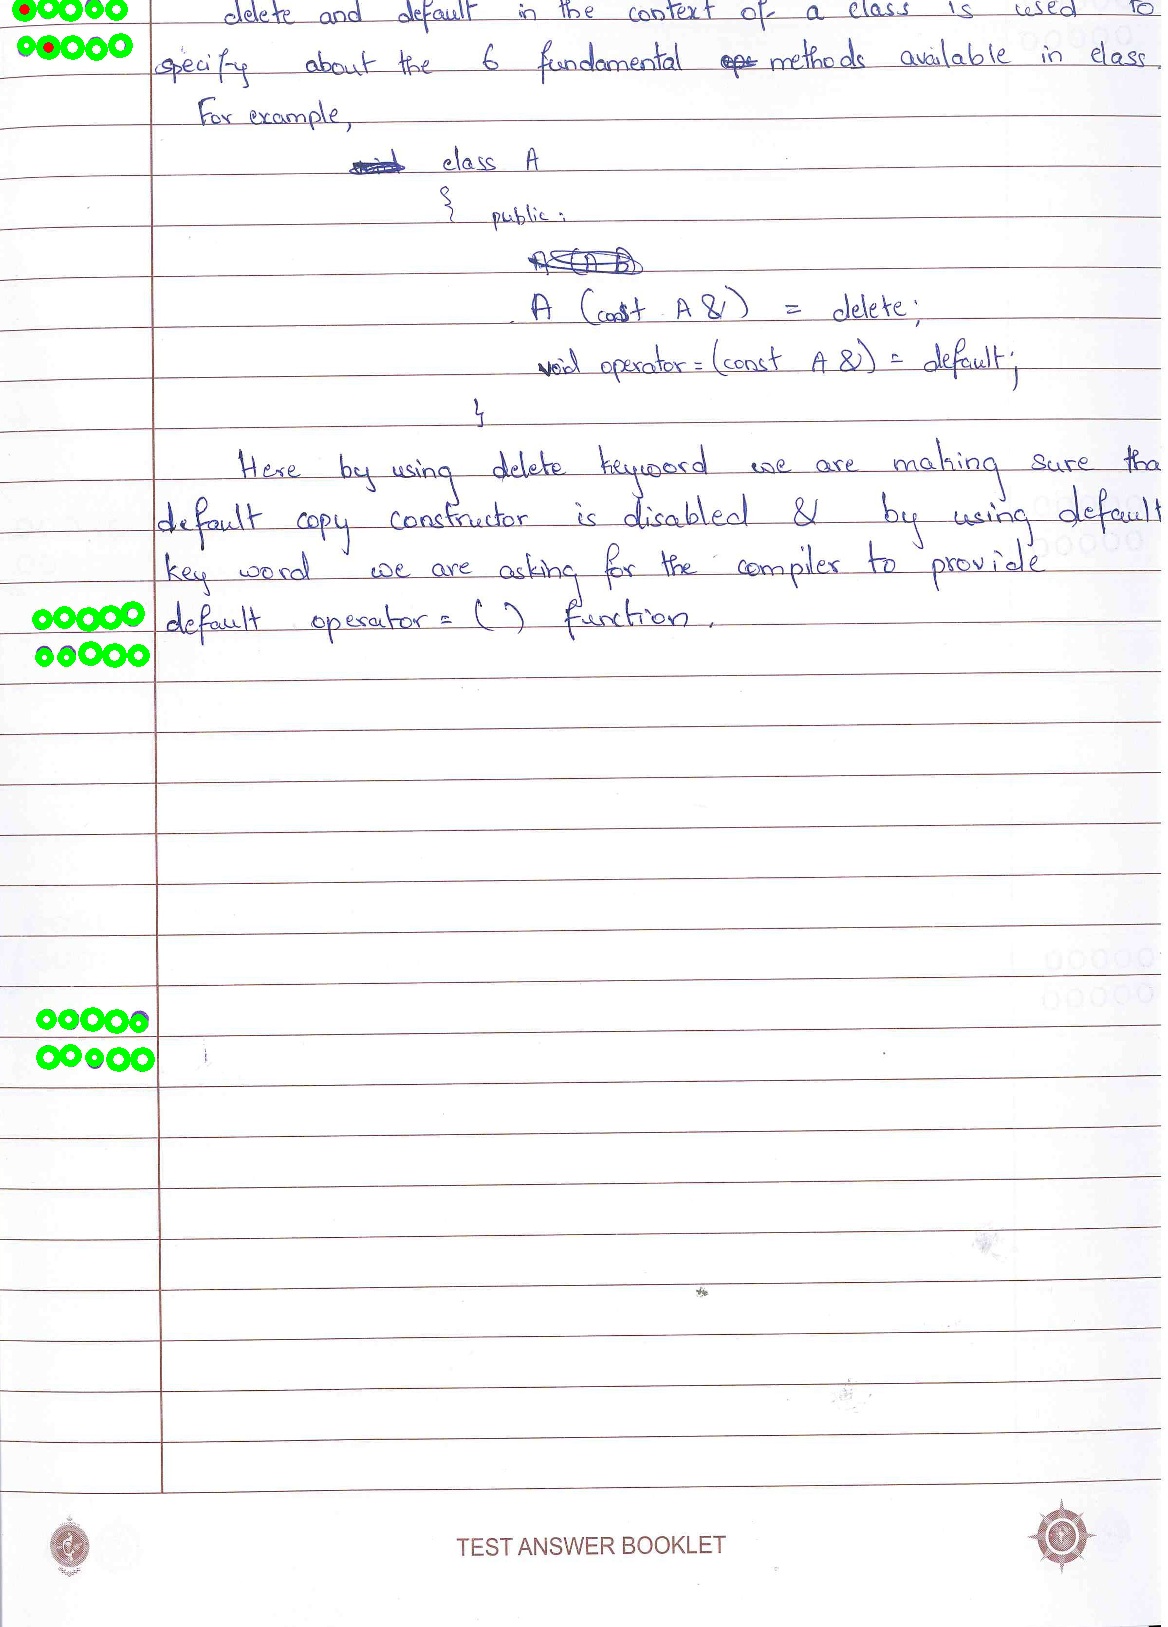 delete and default in the context of a class is used to
specify about the 6 fundamental methods available in class.
For example,
class A
{ public:
A (const A &) = delete;
void operator=(const A &) = default;
}
Here by using delete keyword we are making sure tha
default copy constructor is disabled & by using default
key word we are asking for the compiler to provide
default operator=( ) function.
TEST ANSWER BOOKLET